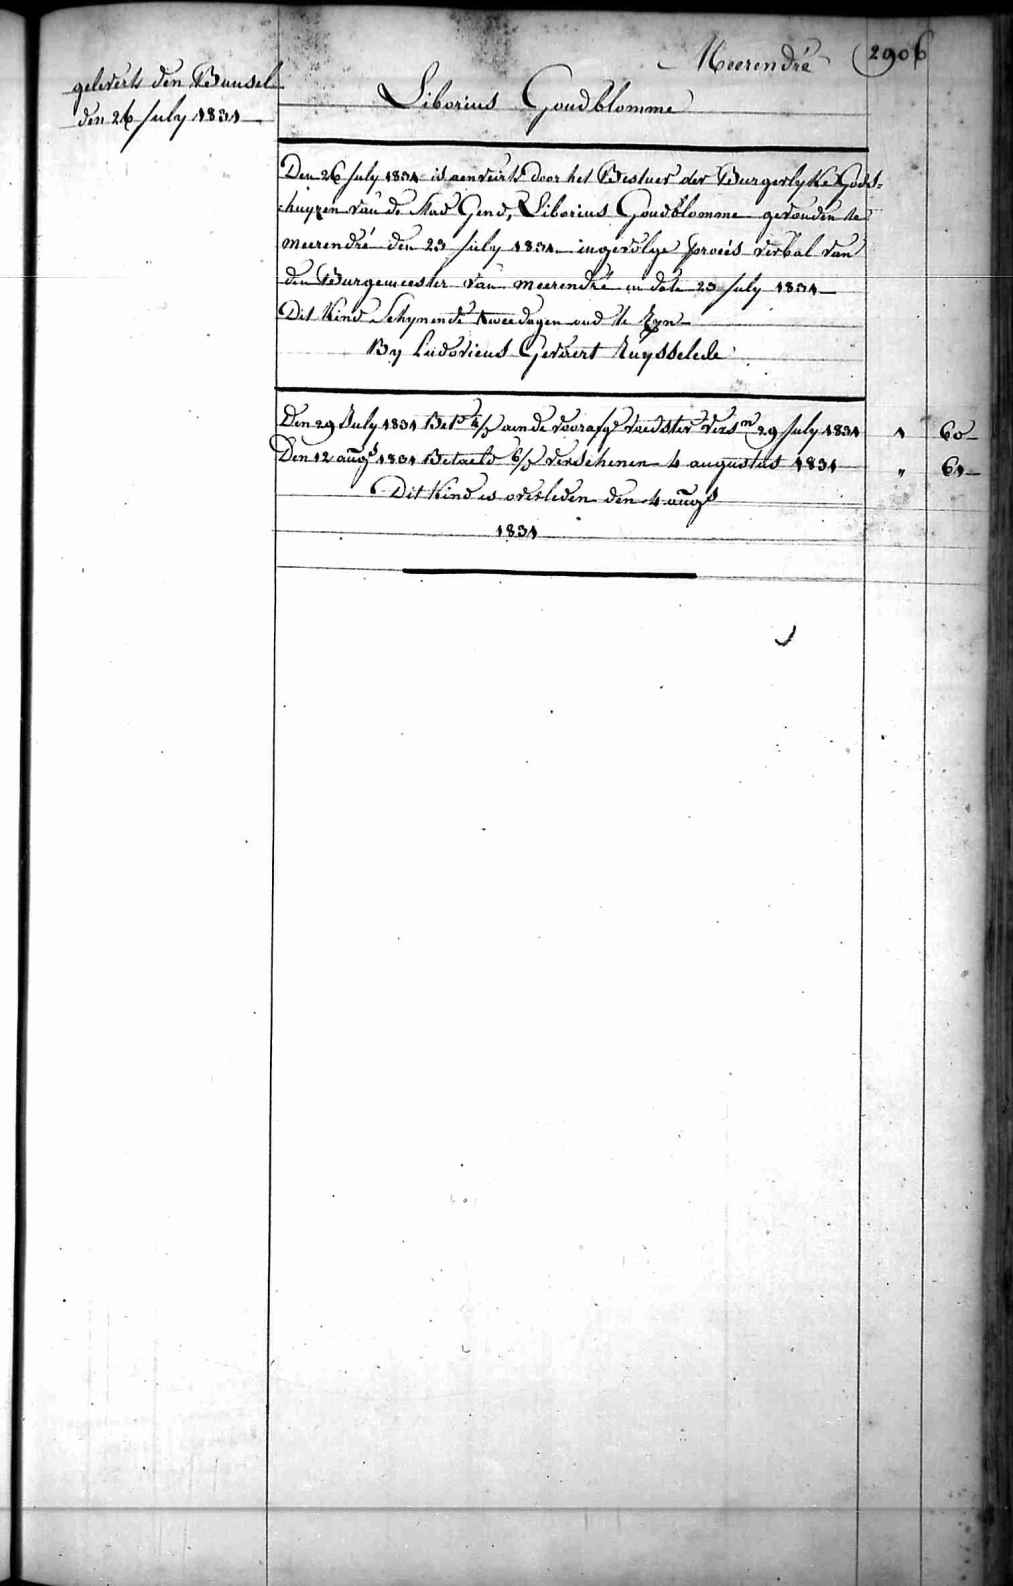 Meerendré 2906
geleverts den Bunsel
den 26 July 1831
Liborius Goudblomme
Den 26 July 1831 is aenveirt door het Bestuer der Burgerlyke Gods=
=huyzen van de stad Gend, Liborius Goudblomme gevonden te
meerendré den 23 July 1831 ingevolge procés verbal van
den Burgemeester van meerendré in date 23 July 1831
Dit Kind Schynende twee dagen oud te Zyn
By Ludovicus Gevaert Ruysselede
Den 29 July 1831 aen de voorafge voedster 29 July 1831 1 60
Den 12 augs 1831 Betaeld verschenen 4 augustus 1831 " 61
Dit Kind is overleden den 4 augs
1831